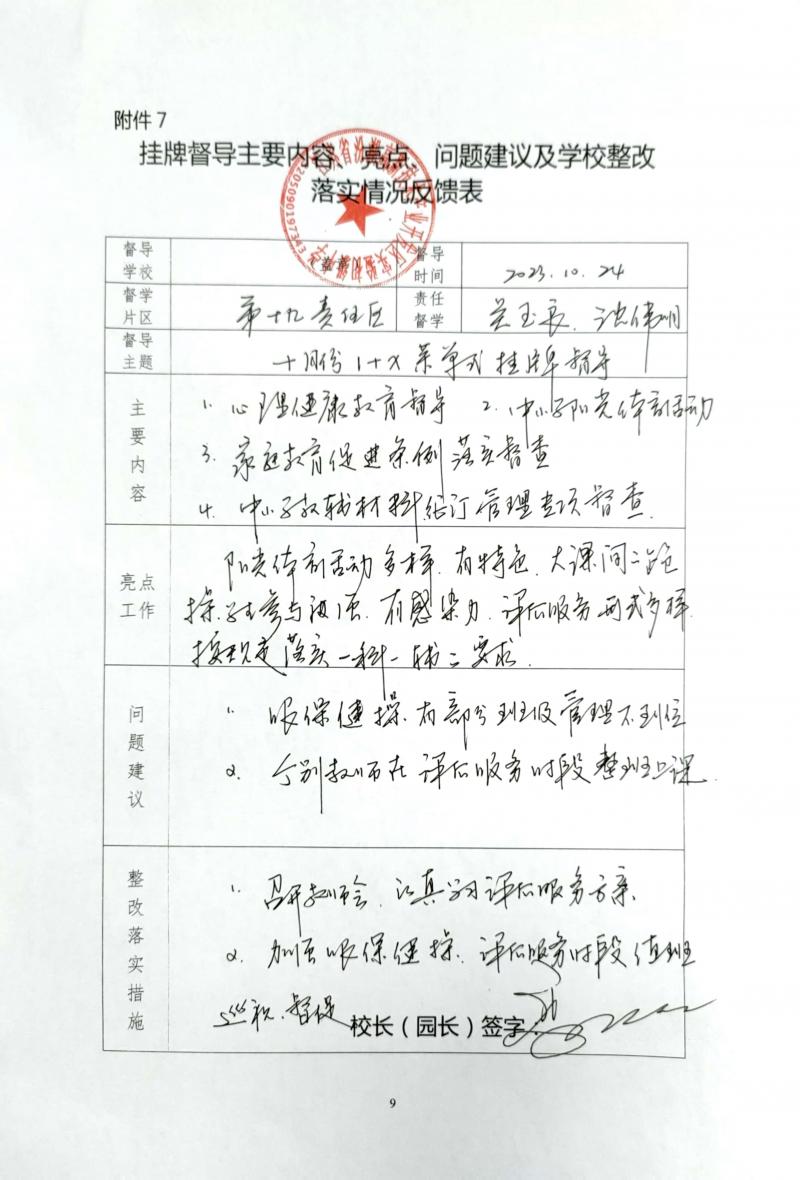 附件7
挂牌督导主要内容、亮点、问题建议及学校整改
落实情况反馈表
督导学校
(盖章)
督导时间 2023.10.24
督学片区 第十九责任区
责任督学 吴玉良、沈伟明
督导主题 十月份1+X菜单式挂牌督导
主要内容
1. 心理健康教育督导 2. 中小学阳光体育活动
3. 家庭教育促进条例落实督查
4. 中小学教辅材料征订管理专项督查.
亮点工作
阳光体育活动多样.有特色.大课间二跑
操.学生参与度强.有感染力.课后服务形式多样.
按规定落实一科一辅之要求.
问题建议
1. 眼保健操.有部分班级管理不到位
2. 个别教师在课后服务时段整班上课.
整改落实措施
1. 召开教师会.认真学习课后服务方案.
2. 加强眼保健操.课后服务时段值班
巡视.督促
校长(园长)签字:
9